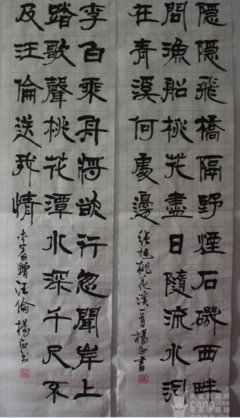 隱隱飛橋隔野煙石磯西畔
問漁船桃花盡日隨流水洞
在青溪何處邊
張旭桃花溪
李白乘舟将欲行忽聞岸上
踏歌聲桃花潭水深千尺不
及汪倫送我情
李白贈汪倫